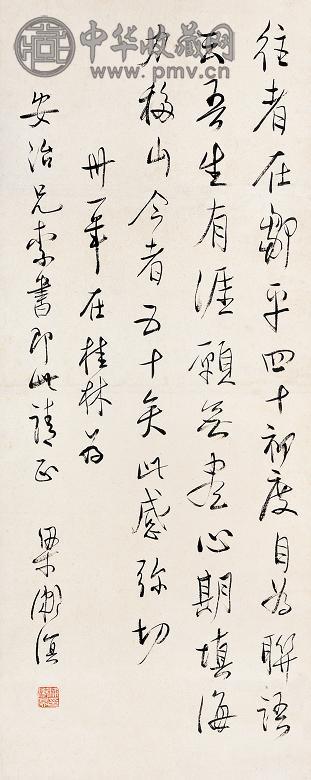 往者在鄒平四十初度自为聯語
云吾生有涯願無盡心期填海
力移山今者五十矣此感弥切
卅一年在桂林为
安治兄索書即此請正 梁漱溟
中华收藏网
www.pmv.cn